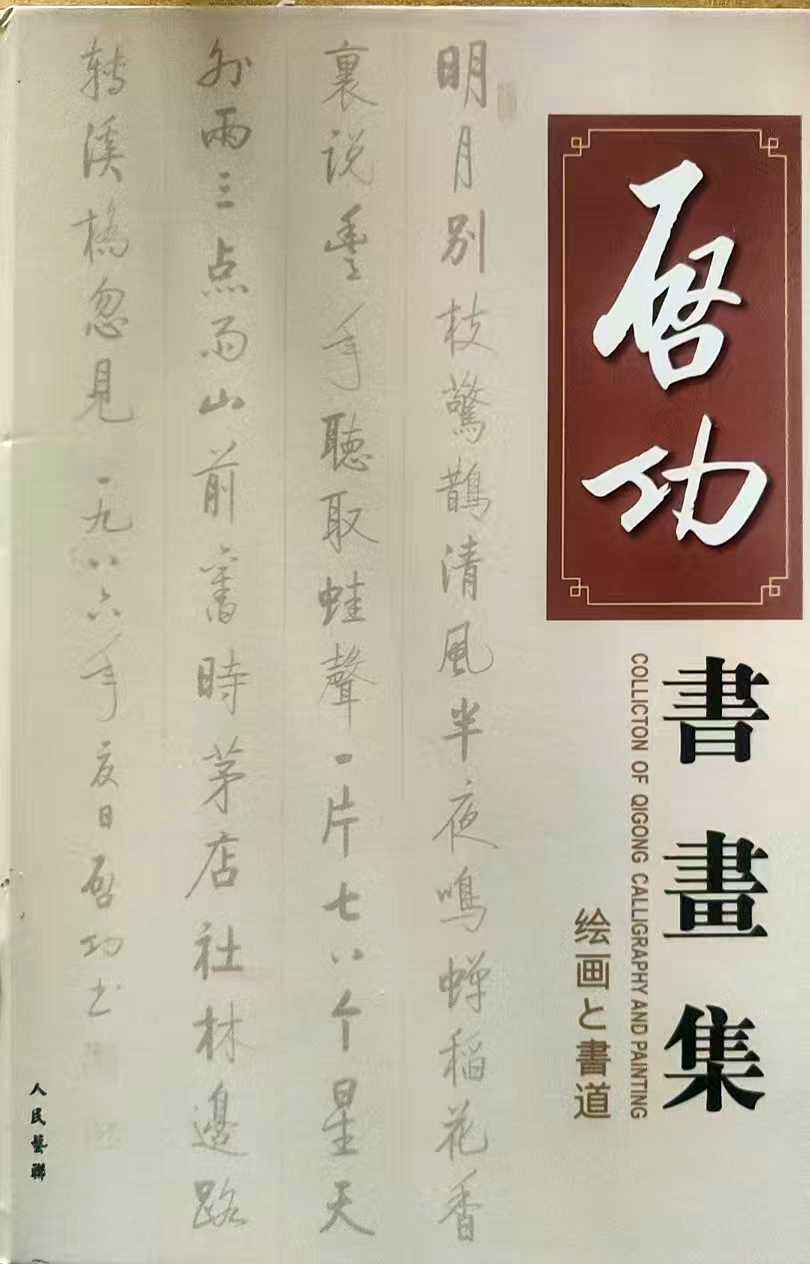 啓功
書畫集
COLLICTON OF QIGONG CALLIGRAPHY AND PAINTING
绘画と書道
明月别枝驚鵲清風半夜鳴蟬稻花香
裏说豐年聴取蛙聲一片七八个星天
外兩三点雨山前舊時茅店社林邊路
轉溪橋忽見 一九八六年夏日啓功书
人民藝聯